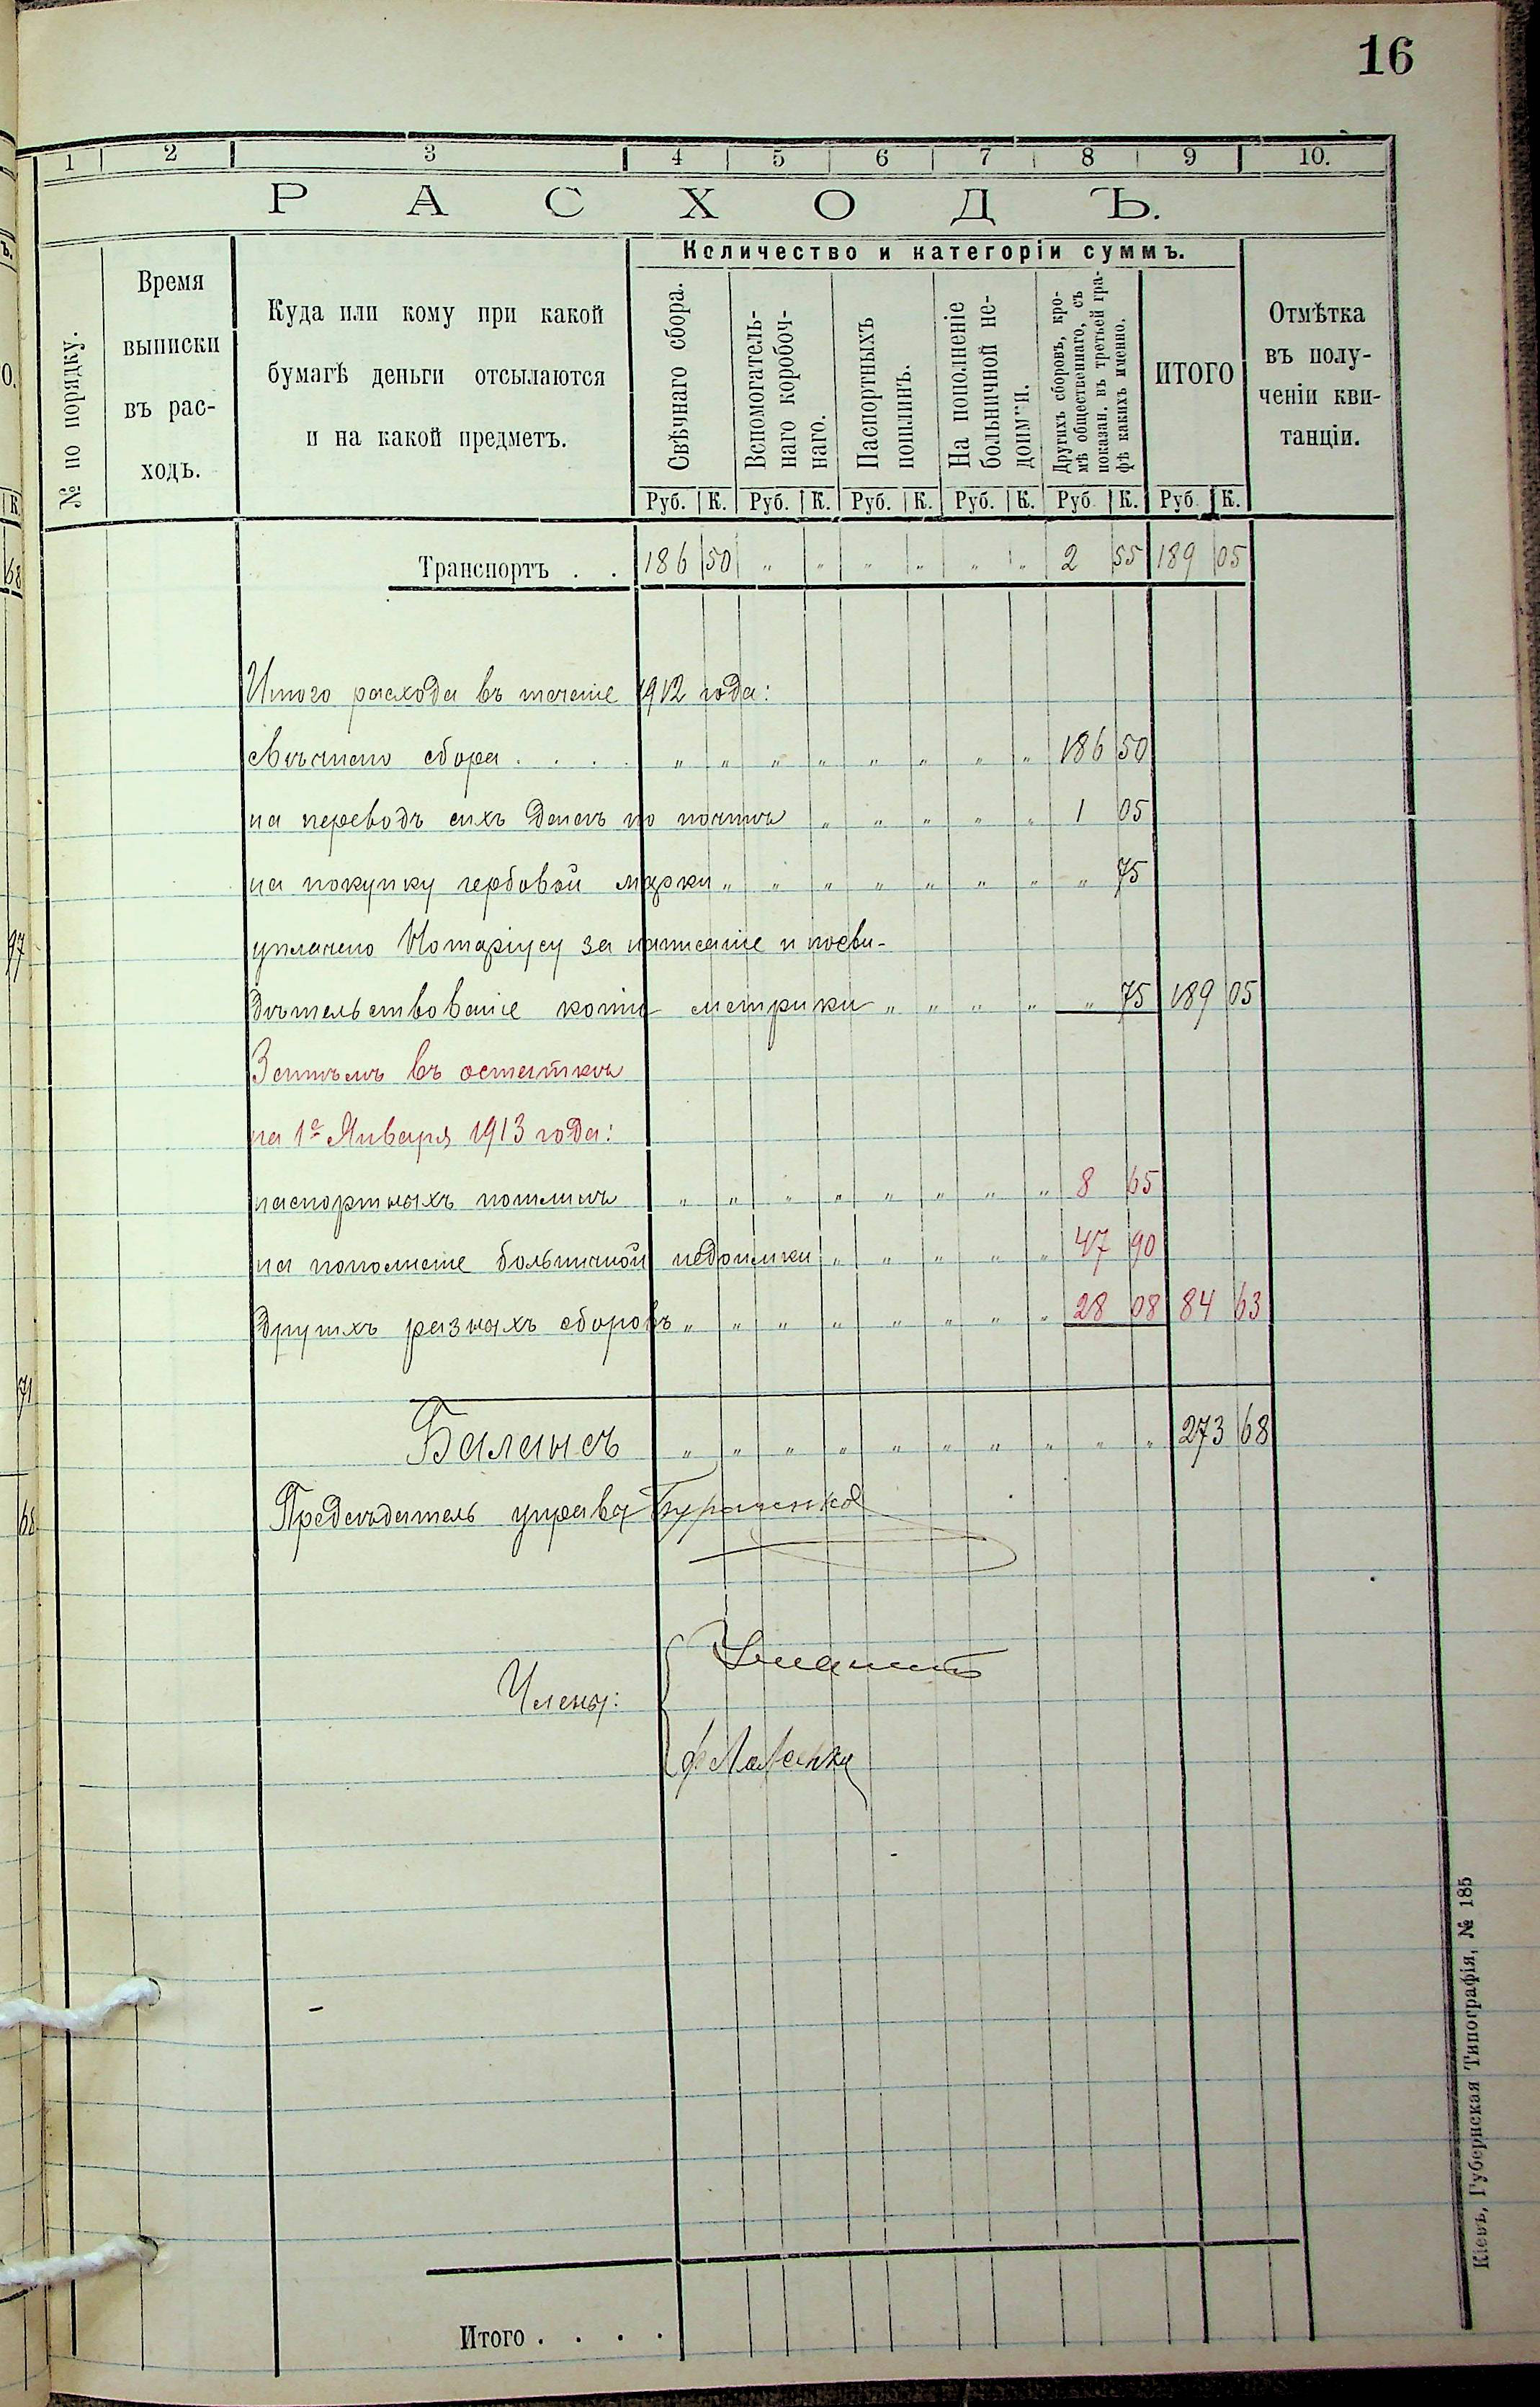 16
1 2 3 4 5 6 7 8 9 10.
РАСХОДЪ.
№ по порядку.
Время
выписки
въ рас-
ходъ.
Куда или кому при какой
бумагѣ деньги отсылаются
и на какой предметъ.
Количество и категоріи суммъ.
Свѣчнаго сбора.
Вспомогатель-
наго коробоч-
наго.
Паспортныхъ
пошлинъ.
На пополненіе
больничной не-
доимки.
Другихъ сборовъ, кро-
мѣ общественнаго, съ
показан. въ третьей гра-
фѣ какихъ именно.
ИТОГО
Отмѣтка
въ полу-
ченіи кви-
танціи.
Руб. К. Руб. К. Руб. К. Руб. К. Руб К. Руб К.
Транспортъ . . 186 50 „ „ „ „ „ „ 2 55 189 05
Итого расхода въ теченіе 1912 года:
свѣчного сбора . . . . „ „ „ „ „ „ „ „ 186 50
на переводъ сихъ денегъ по почтѣ „ „ „ „ „ 1 05
на покупку гербовой марки „ „ „ „ „ „ „ „ 75
уплачено Нотаріусу за написаніе и посви-
дѣтельствованіе копіи метрики „ „ „ „ „ 75 189 05
Затѣмъ въ остаткѣ
на 1е Января 1913 года:
паспортныхъ пошлинъ „ „ „ „ „ „ „ „ 8 65
на пополненіе больничной недоимки „ „ „ „ „ 47 90
другихъ разныхъ сборовъ „ „ „ „ „ „ „ „ 28 08 84 63
Балансъ „ „ „ „ „ „ „ „ „ „ 273 68
Предсѣдатель управы
Члены:
Итого . . . .
Кіевъ, Губернская Типографія, № 185
К
68
97
71
68